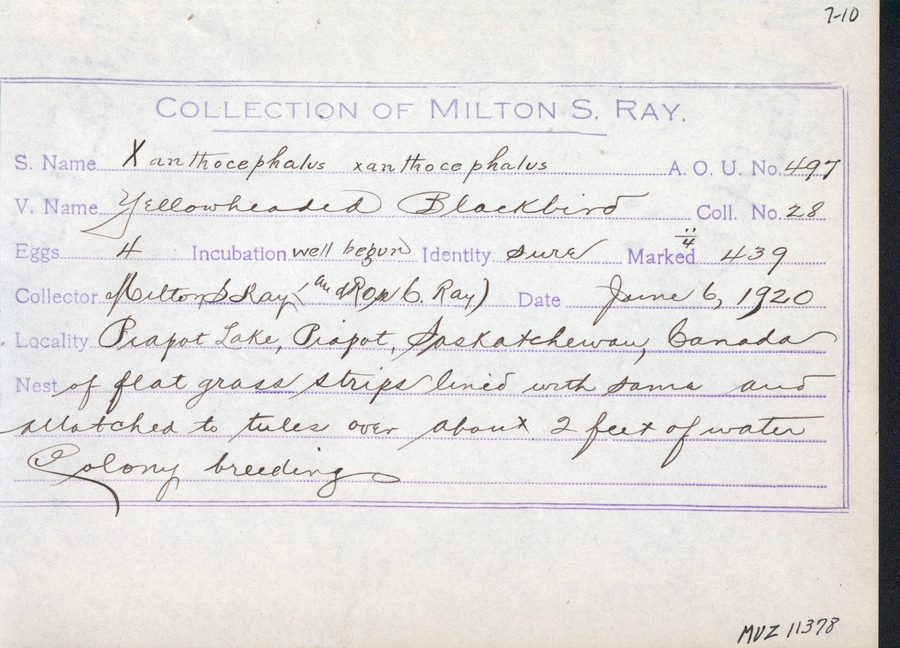 7-10
COLLECTION OF MILTON S. RAY.
S. Name Xanthocephalus xanthocephalus A. O. U. No. 497
V. Name Yellowheaded Blackbird Coll. No. 28
Eggs 4 Incubation well begun Identity sure Marked 4 439
Collector Milton S Ray (and Rose C. Ray) Date June 6, 1920
Locality Piapot Lake, Piapot, Saskatchewan, Canada
Nest of flat grass strips lined with same and
attatched to tules over about 2 feet of water
Colony breeding
MVZ 11378